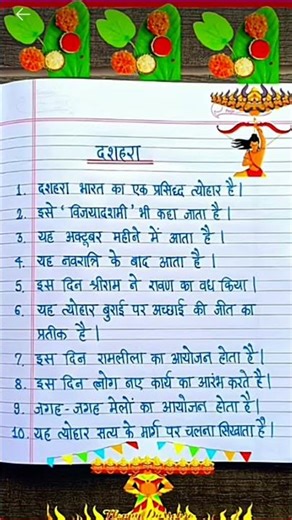 दशहरा
1. दशहरा भारत का एक प्रसिद्ध त्योहार है |
2. इसे ' विजयादशमी ' भी कहा जाता है |
3. यह अक्टूबर महीने में आता है |
4. यह नवरात्रि के बाद आता है |
5. इस दिन श्रीराम ने रावण का वध किया |
6. यह त्योहार बुराई पर अच्छाई की जीत का
प्रतीक है |
7. इस दिन रामलीला का आयोजन होता है |
8. इस दिन लोग नए कार्य का आरंभ करते है |
9. जगह - जगह मेलों का आयोजन होता है |
10. यह त्योहार सत्य के मार्ग पर चलना सिखाता है |
Happy Dussehra